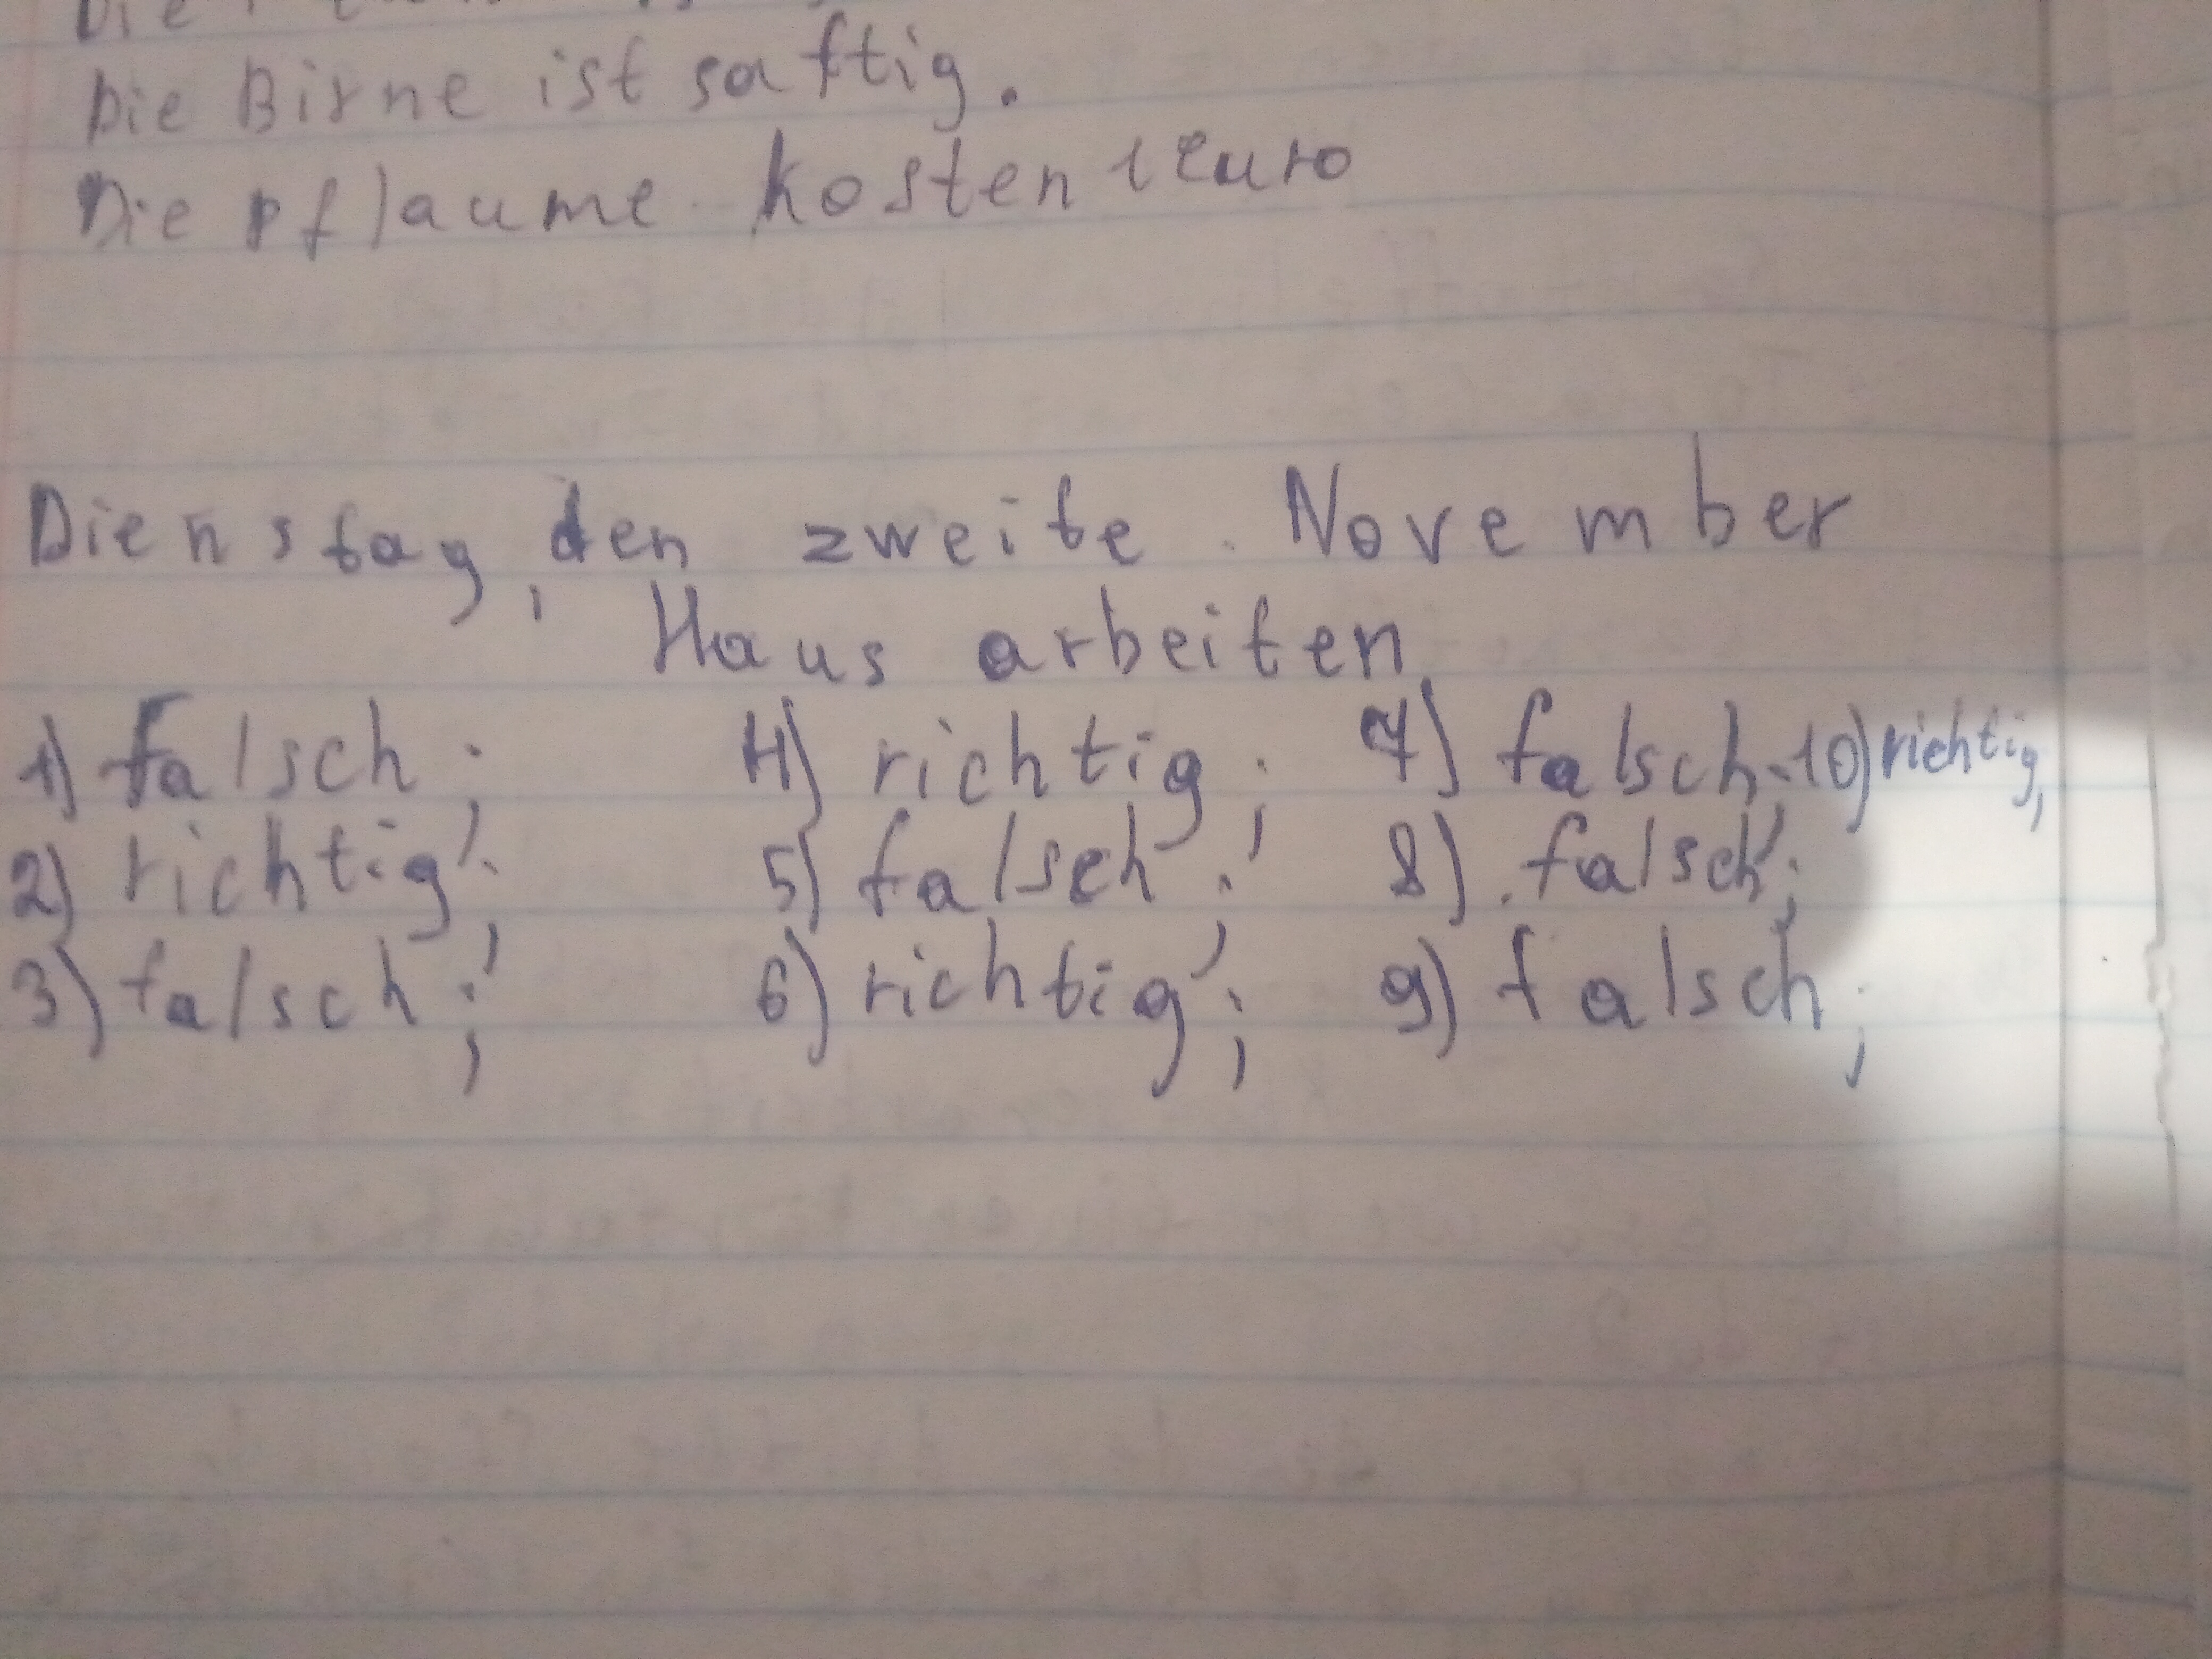 Die
Die Birne ist saftig.
Die pflaume kosten 1 Euro
Dienstag, den zweite November
Haus arbeiten
1) falsch; 4) richtig; 7) falsch; 10) richtig,
2) richtig; 5) falsch; 8) falsch;
3) falsch; 6) richtig; 9) falsch;